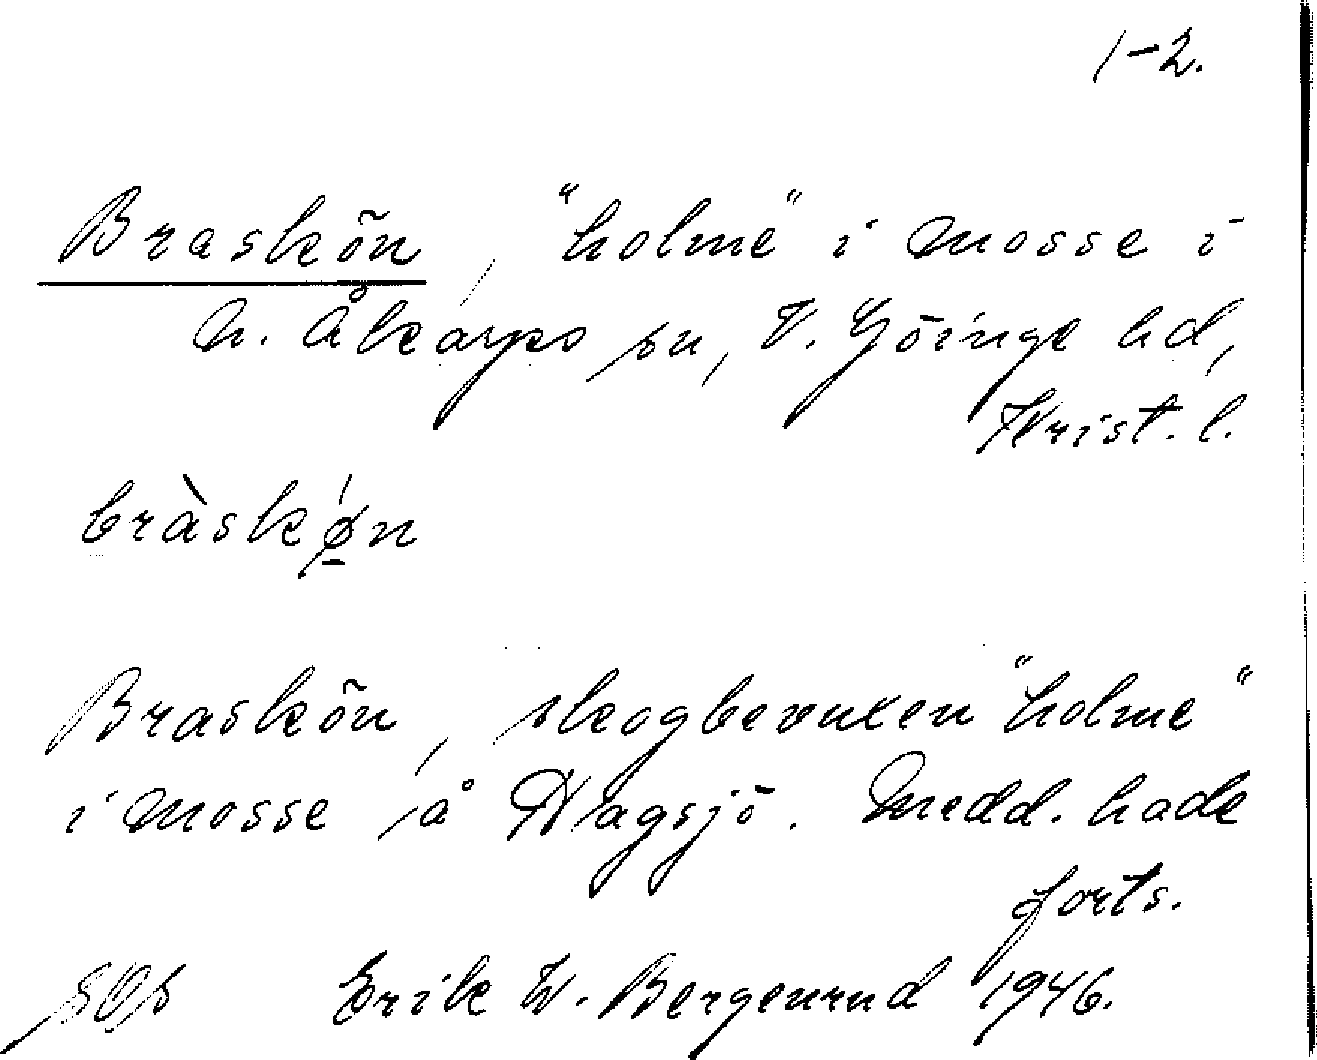 1-2.
Braskön, "holme" i mosse i
N. Åkarps sn, V. Göinge hd,
Krist. l.
bràskǿn
Braskön, skogbevuxen "holme"
i mosse på Hagsjö. Medd. hade
forts.
Erik W. Bergenrud 1946.